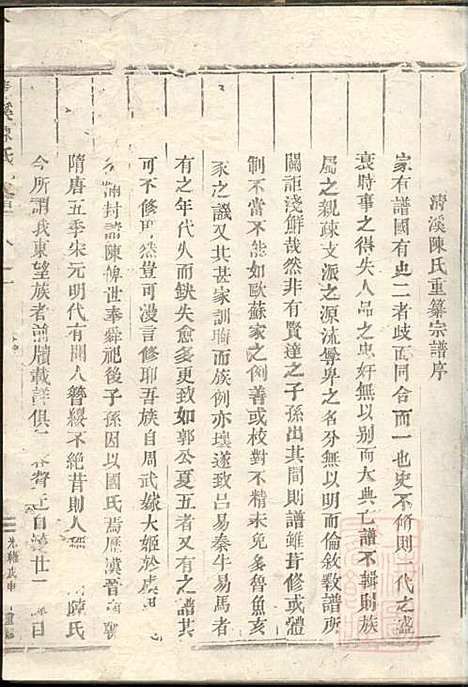 清溪陳氏重纂宗譜序
家有譜國有史二者歧而同合而一也史不脩則一代之盛
衰時事之得失人品之忠奸無以別而大典亡譜不輯則族
屬之親疎支派之源流尊卑之名分無以明而倫敘斁譜所
關詎淺鮮哉然非有賢達之子孫出其間則譜雖葺修或體
制不當不能如歐蘇家之例善或校對不精未免多魯魚亥
豕之譏又其甚家訓隳而族例亦壞遂致呂易秦牛易馬者
有之年代久而鈌失愈多更致如郭公夏五者又有之譜其
可不修耶然豈可漫言修耶吾族自周武嫁大姬於虞
滿封諸陳俾世奉舜祀後子孫因以國氏焉歷漢晉
隋唐五季宋元明代有聞人簪纓不絕昔則人 陳氏
今所謂我東望族者前牘載詳俱 自 廿 日
溪陳氏
光緒戊申 重